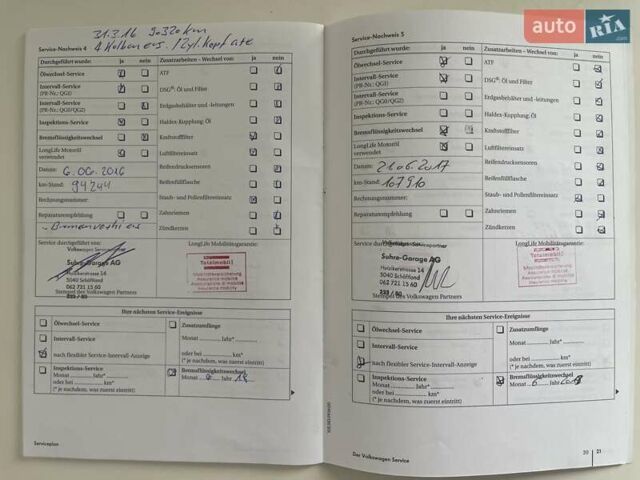 31.3.16 90320km
Service-Nachweis 4
Durchgeführt wurde: ja nein
Ölwechsel-Service
Intervall-Service
(PR-Nr.: QG1)
Intervall-Service
(PR-Nr.: QG0/QG2)
Inspektions-Service
Bremsflüssigkeitswechsel
LongLife Motoröl
verwendet
Datum: 6.06.2016
km-Stand: 94244
Rechnungsnummer:
Reparaturempfehlung
Zusatzarbeiten – Wechsel von: ja nein
ATF
DSG®: Öl und Filter
Erdgasbehälter und -leitungen
Haldex-Kupplung: Öl
Kraftstofffilter
Luftfiltereinsatz
Reifendrucksensoren
Reifenfüllflasche
Staub- und Pollenfiltereinsatz
Zahnriemen
Zündkerzen
Service durchgeführt von:
Volkswagen Servicepartner
Suhre-Garage AG
5040 Schöftland
062 721 15 60
Stempel des Volkswagen Partners
LongLife Mobilitätsgarantie:
Totalmobil!
Ihre nächsten Service-Ereignisse
Ölwechsel-Service
Intervall-Service
nach flexibler Service-Intervall-Anzeige
Inspektions-Service
Monat Jahr*
oder bei km*
(* je nachdem, was zuerst eintritt)
Zusatzumfänge
Monat Jahr*
oder bei km*
(* je nachdem, was zuerst eintritt)
Bremsflüssigkeitswechsel
Monat 6 Jahr 18
Serviceplan
auto RIA.com
Service-Nachweis 5
Durchgeführt wurde: ja nein
Ölwechsel-Service
Intervall-Service
(PR-Nr.: QG1)
Intervall-Service
(PR-Nr.: QG0/QG2)
Inspektions-Service
Bremsflüssigkeitswechsel
LongLife Motoröl
verwendet
Datum: 21.06.2017
km-Stand: 107910
Rechnungsnummer:
Reparaturempfehlung
Zusatzarbeiten – Wechsel von:
ATF
DSG®: Öl und Filter
Erdgasbehälter und -leitungen
Haldex-Kupplung: Öl
Kraftstofffilter
Luftfiltereinsatz
Reifendrucksensoren
Reifenfüllflasche
Staub- und Pollenfiltereinsatz
Zahnriemen
Zündkerzen
Service durchgeführt von:
Suhre-Garage AG
5040 Schöftland
062 721 15 60
Stempel des Volkswagen Partners
LongLife Mobilitätsgarantie:
Totalmobil!
Ihre nächsten Service-Ereignisse
Ölwechsel-Service
Intervall-Service
nach flexibler Service-Intervall-Anzeige
Inspektions-Service
Monat Jahr*
oder bei km*
(* je nachdem, was zuerst eintritt)
Zusatzumfänge
Monat Jahr*
oder bei km*
(* je nachdem, was zuerst eintritt)
Bremsflüssigkeitswechsel
Monat 6 Jahr
Der Volkswagen Service
20 21